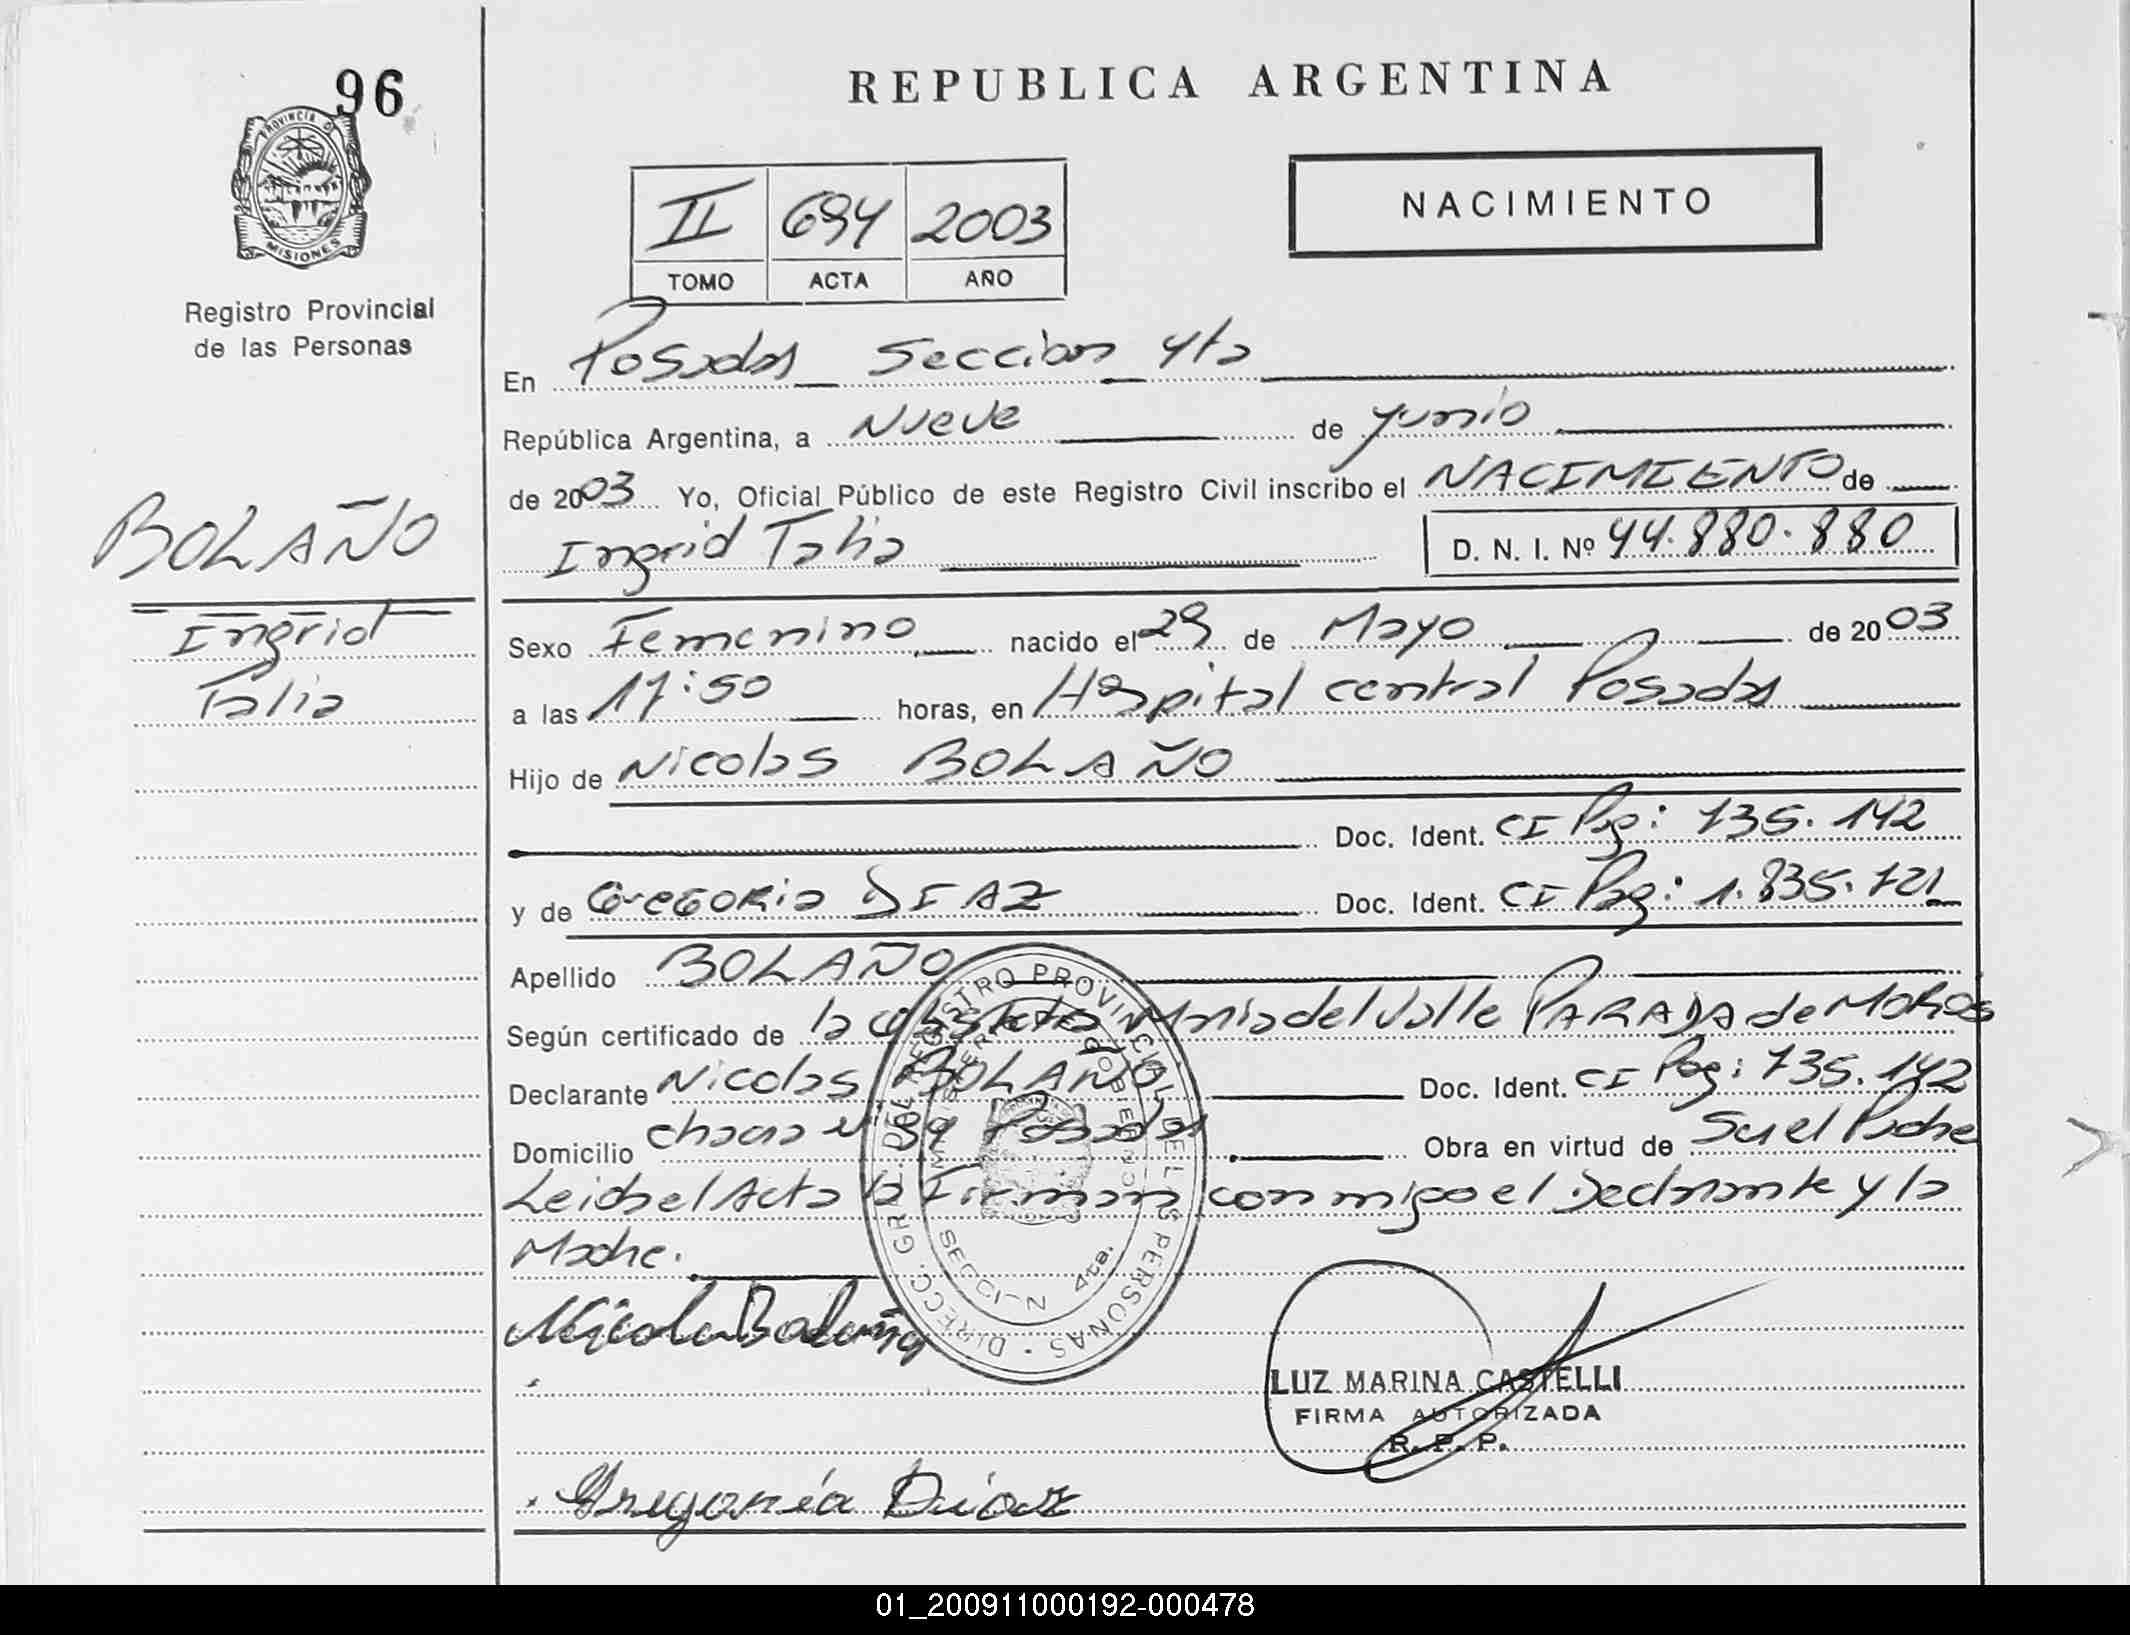 96
REPUBLICA ARGENTINA
PROVINCIA D
MISIONES
Registro Provincial
de las Personas
NACIMIENTO
II 694 2003
TOMO ACTA AÑO
En Posadas Seccion 4ta
República Argentina, a Nueve de junio
de 2003 Yo, Oficial Público de este Registro Civil inscribo el NACIMIENTO de
Ingrid Talia D. N. I. Nº 44.880.880
BOLAÑO
Ingrid
Talia
Sexo Femenino nacido el 29 de Mayo de 2003
a las 17:50 horas, en Hospital central Posadas
Hijo de Nicolas BOLAÑO
Doc. Ident. CI Pag: 735.142
y de Gregoria DIAZ Doc. Ident. CI Pag: 1.835.721
Apellido BOLAÑO
Según certificado de la obstetra Maria del Valle PARADA de MOROS
Declarante Nicolas BOLAÑO Doc. Ident. CI Pag: 735.142
Domicilio chacra Nº 39 Posadas Obra en virtud de Ser el Padre
Leida el Acta la Firman con migo el Declarante y la
Madre.
DIRECC. GRAL. DEL REGISTRO PROVINCIAL DE LAS PERSONAS
MINISTERIO DE GOBIERNO
SECCION 4ta.
Nicola Bolaña
LUZ MARINA CASTELLI
FIRMA AUTORIZADA
R. P. P.
Gregoria Diaz
01_200911000192-000478